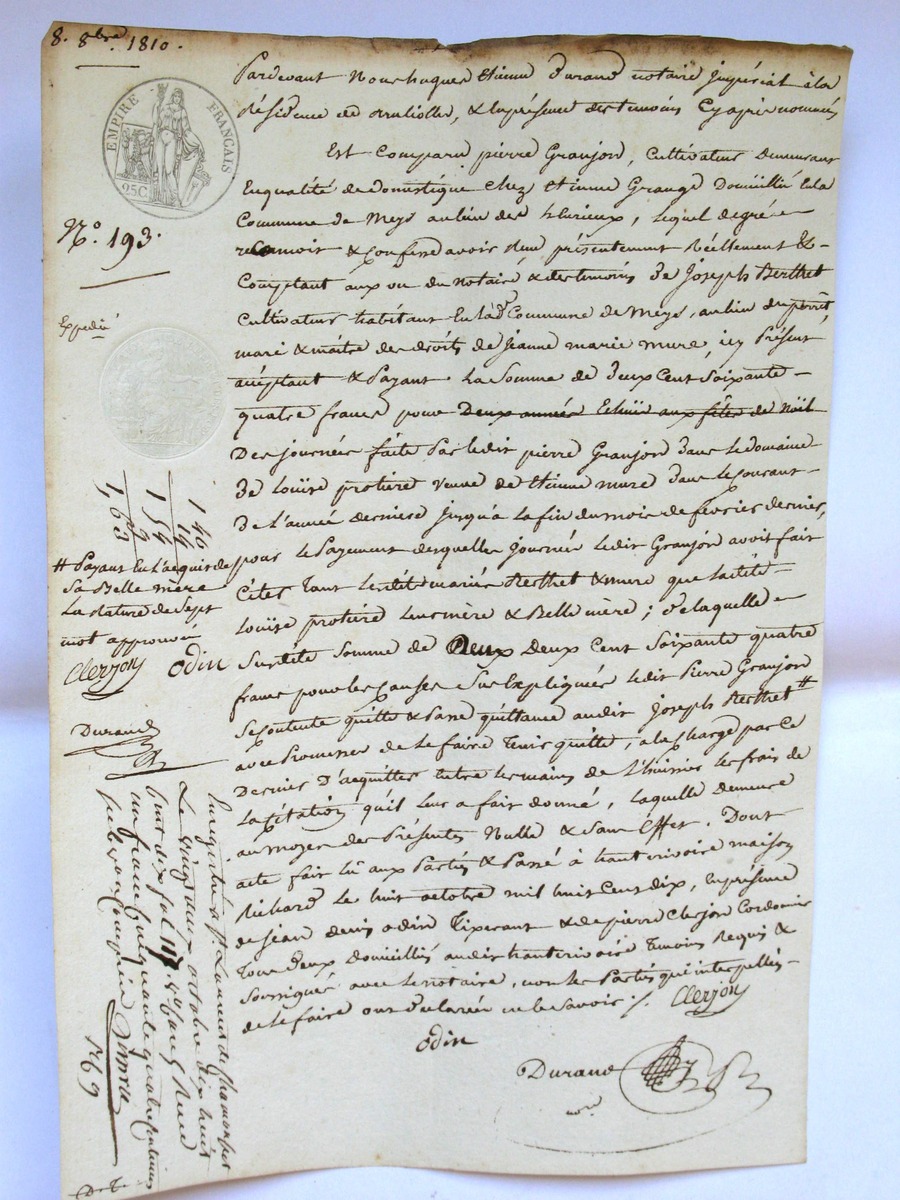 8. 8bre. 1810.
EMPIRE FRANÇAIS
25C
N°. 193.
Expedié
Pardevant Nous hugues Etienne Durand notaire Impérial à la
Résidence de & En présence des temoins Cy après nommés
Est Comparu pierre Granjon, Cultivateur Demeurant
En qualité de domestique Chez Etienne Grange Domicilié En la
Commune de Meys au lieu des , lequel de gré
reconnoit & Confesse avoir Reçu présentement Réellement &
Comptant aux vu du Notaire & des temoins De Joseph Berthet
Cultivateur habitant En lad. Commune de Meys, au lieu du perret
mari & maître des droits de Jeanne marie mure, icy Présent
acceptant & Payant La Somme de Deux Cent Soixante
quatre francs pour Deux années Echüe aux fêtes de Noël
Des journées faite Par ledit pierre Granjon Dans le domaine
De Louise protiere veuve de Etienne mure Dans le Courant
De L'année derniere jusqu'a la fin du mois de fevrier dernier,
pour le Payement desquelles journées ledit Granjon avoit fait
Citer Tant lesdits mariés Berthet & mure que ladite
Louise protiere leur mère & Belle mère ; De laquelle
Surdite Somme de Deux Deux Cent Soixante quatre
francs pour les Causes Sus Expliquées ledit Pierre Granjon
Se Contente quitte & Passe quittance audit Joseph Berthet #
avec Promesse de le faire Tenir quitte, a la Charge par Ce
Dernier D'acquitter Entre les mains de L'huissier les frais de
La Citation qu'il leur a fait donné, laquelle demeure
au moyen des Présentes Nulle & Sans Effet. Dont
acte fait lû aux Parties & Passé à hauterivoire maison
Richard Le huit octobre mil huit Cent dix, En présence
de Jean denis odin Tixerant & de pierre Clerjon Cordonnier
Tous Deux Domiciliés audit hauterivoire Temoins Requis &
Soussignés avec le notaire, non les Parties qui interpellés
de le faire ont Déclarées ne le Savoir. /. Clerjon
odin
Durand
nore
140
14
154
9
163
# Payant En L'acquit de
Sa Belle mère
La Rature de Sept
mot approuvée
Clerjon odin
Durand
Enregistré à St. Laurent de Chamousset
Le vingt deux octobre dix huit
Cent dix fol 117. Reçu
un franc Cinquante quatre Centimes
Subvention Comprise
1.69